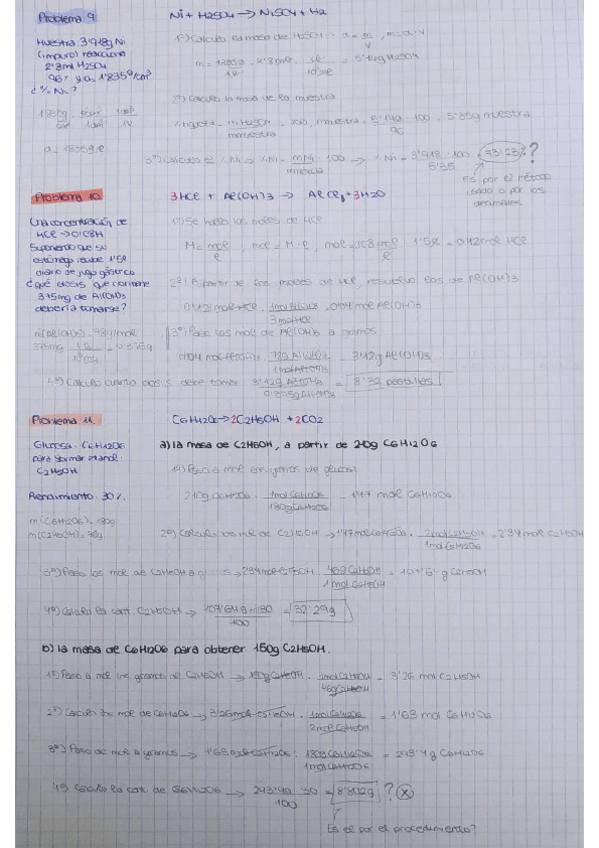 Problema 9 Ni + H2SO4 → NiSO4 + H2
Muestra 3'918g Ni
(impuro) reacciona
2'8ml H2SO4
96% y d=1'835g/cm³
¿% Ni?
1º) Calculo la masa de H2SO4
2º) Calculo la masa de la muestra
3º) Calculo el % Ni → % Ni = mNi · 100 → % Ni = 3'918 · 100 = 73'23% ?
muestra 5'35
Es por el método
usado o por los
decimales
Problema 10 3HCl + Al(OH)3 → AlCl3 + 3H2O
Una concentración de
HCl → 0'08M
Suponiendo que su
estómago recibe 1'5l
diario de jugo gástrico
¿qué dosis que contiene
375mg de Al(OH)3
debería tomarse?
1º) Se halla los moles de HCl
M = mol / l , mol = M · l , 1'5l = 0'12mol HCl
2º) A partir de los moles de HCl, resuelvo los de Al(OH)3
0'12 mol HCl · 1mol Al(OH)3 / 3mol HCl = 0'04 mol Al(OH)3
m(Al(OH)3) = 78g/mol
3º) Paso los mol de Al(OH)3 a gramos
0'04 mol Al(OH)3 · 78g Al(OH)3 / 1mol Al(OH)3 = 3'12g Al(OH)3
4º) Calculo cuanta dosis debe tomar: 3'12g Al(OH)3 / 0'375g Al(OH)3 = 8'32 pastillas
Problema 11 C6H12O6 → 2C2H5OH + 2CO2
Glucosa: C6H12O6
para formar etanol:
C2H5OH
Rendimiento: 30%
a) la masa de C2H5OH, a partir de 210g C6H12O6
1º) Paso a mol los gramos de glucosa
210g C6H12O6 · 1mol C6H12O6 / 180g C6H12O6 = 1'17 mol C6H12O6
m(C6H12O6) = 180g
2º) Calculo los mol de C2H5OH → 1'17mol C6H12O6 · 2mol C2H5OH / 1mol C6H12O6 = 2'34 mol C2H5OH
3º) Paso los mol de C2H5OH a g → 2'34mol C2H5OH · 46g C2H5OH / 1mol C2H5OH = 107'64g C2H5OH
4º) Calculo la cant. C2H5OH → 107'64g · 30 / 100 = 32'29g
b) la masa de C6H12O6 para obtener 150g C2H5OH.
1º) Paso a mol los gramos de C2H5OH → 150g C2H5OH · 1mol C2H5OH / 46g C2H5OH = 3'26 mol C2H5OH
2º) Calculo los mol de C6H12O6 → 3'26mol C2H5OH · 1mol C6H12O6 / 2mol C2H5OH = 1'63 mol C6H12O6
3º) Paso de mol a gramos → 1'63 mol C6H12O6 · 180g C6H12O6 / 1mol C6H12O6 = 293'4g C6H12O6
4º) Calculo la cant. de C6H12O6 → 293'4g · 30 / 100 = 8'802g ?
Es el por el procedimiento?